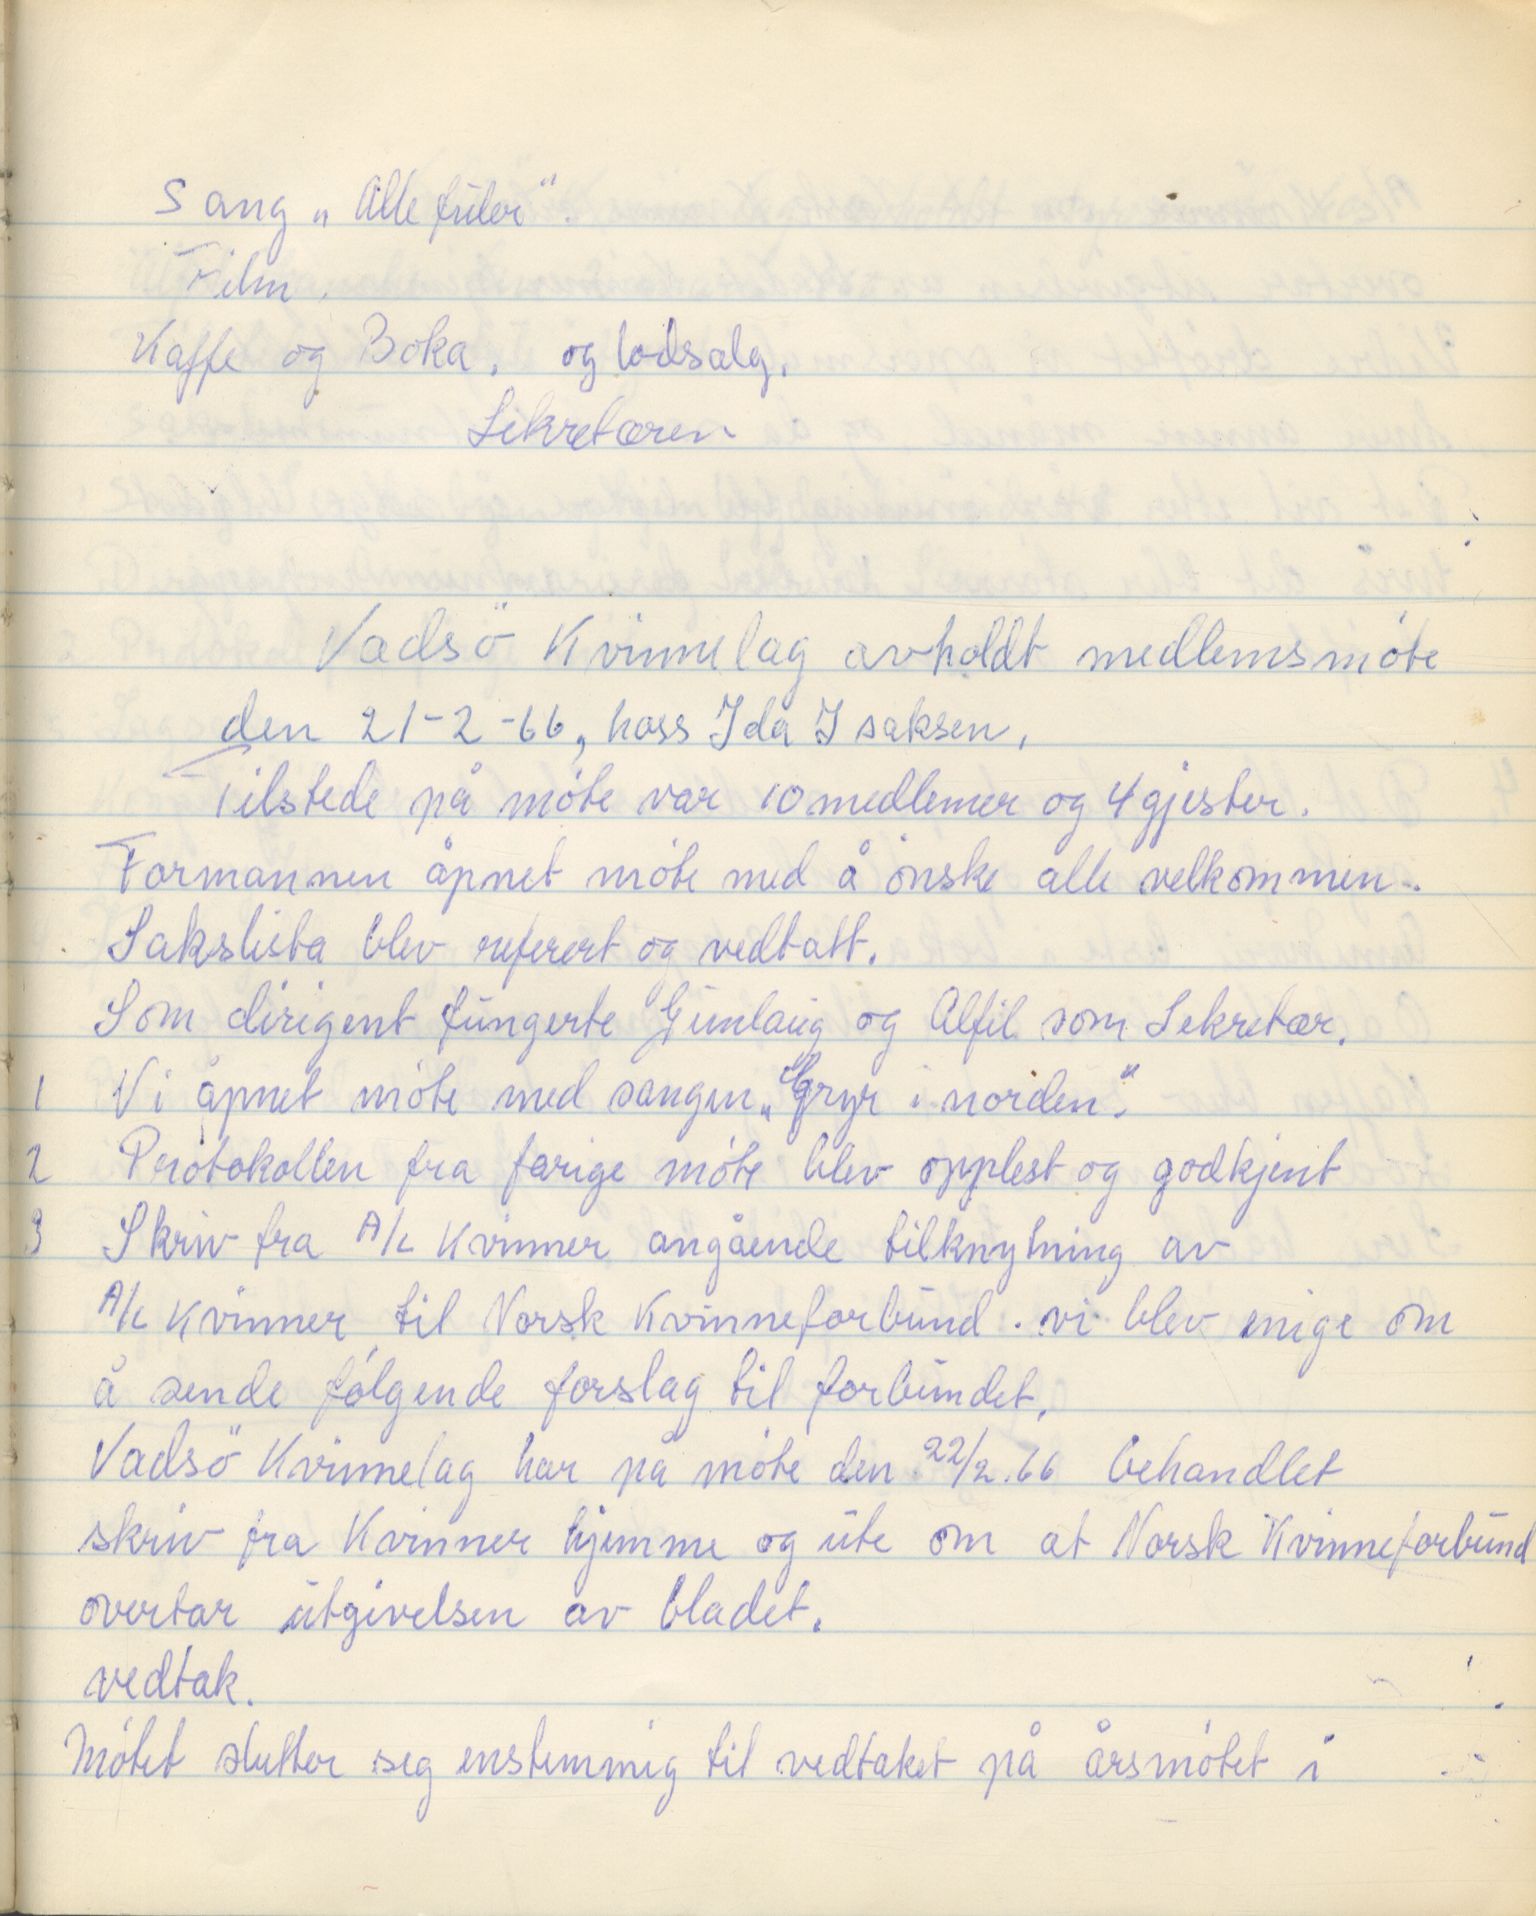 Sang „Alle fuler".
Film.
Kaffe og Boka, og lodsalg.
Sekretæren
Vadsö Kvinnelag avholdt medlemsmöte
den 21-2-66, hoss Ida Isaksen,
Tilstede på möte var 10 medlemer og 4 gjester.
Formannen åpnet möte med å önske alle velkommen.
Sakslista blev referert og vedtatt.
Som dirigent fungerte Gunlaug og Alfil som Sekretær.
1 Vi åpnet möte med sangen „Gryr i norden".
2 Protokollen fra forige möte blev opplest og godkjent
3 Skriv fra A/L Kvinner angående tilknytning av
A/L Kvinner til Norsk Kvinneforbund. vi blev enige om
å sende fölgende forslag til forbundet.
Vadsö Kvinnelag har på möte den 22/2.66 behandlet
skriv fra Kvinner hjemme og ute om at Norsk Kvinneforbund
overtar utgivelsen av bladet.
vedtak.
Mötet slutter seg enstemmig til vedtaket på årsmötet i